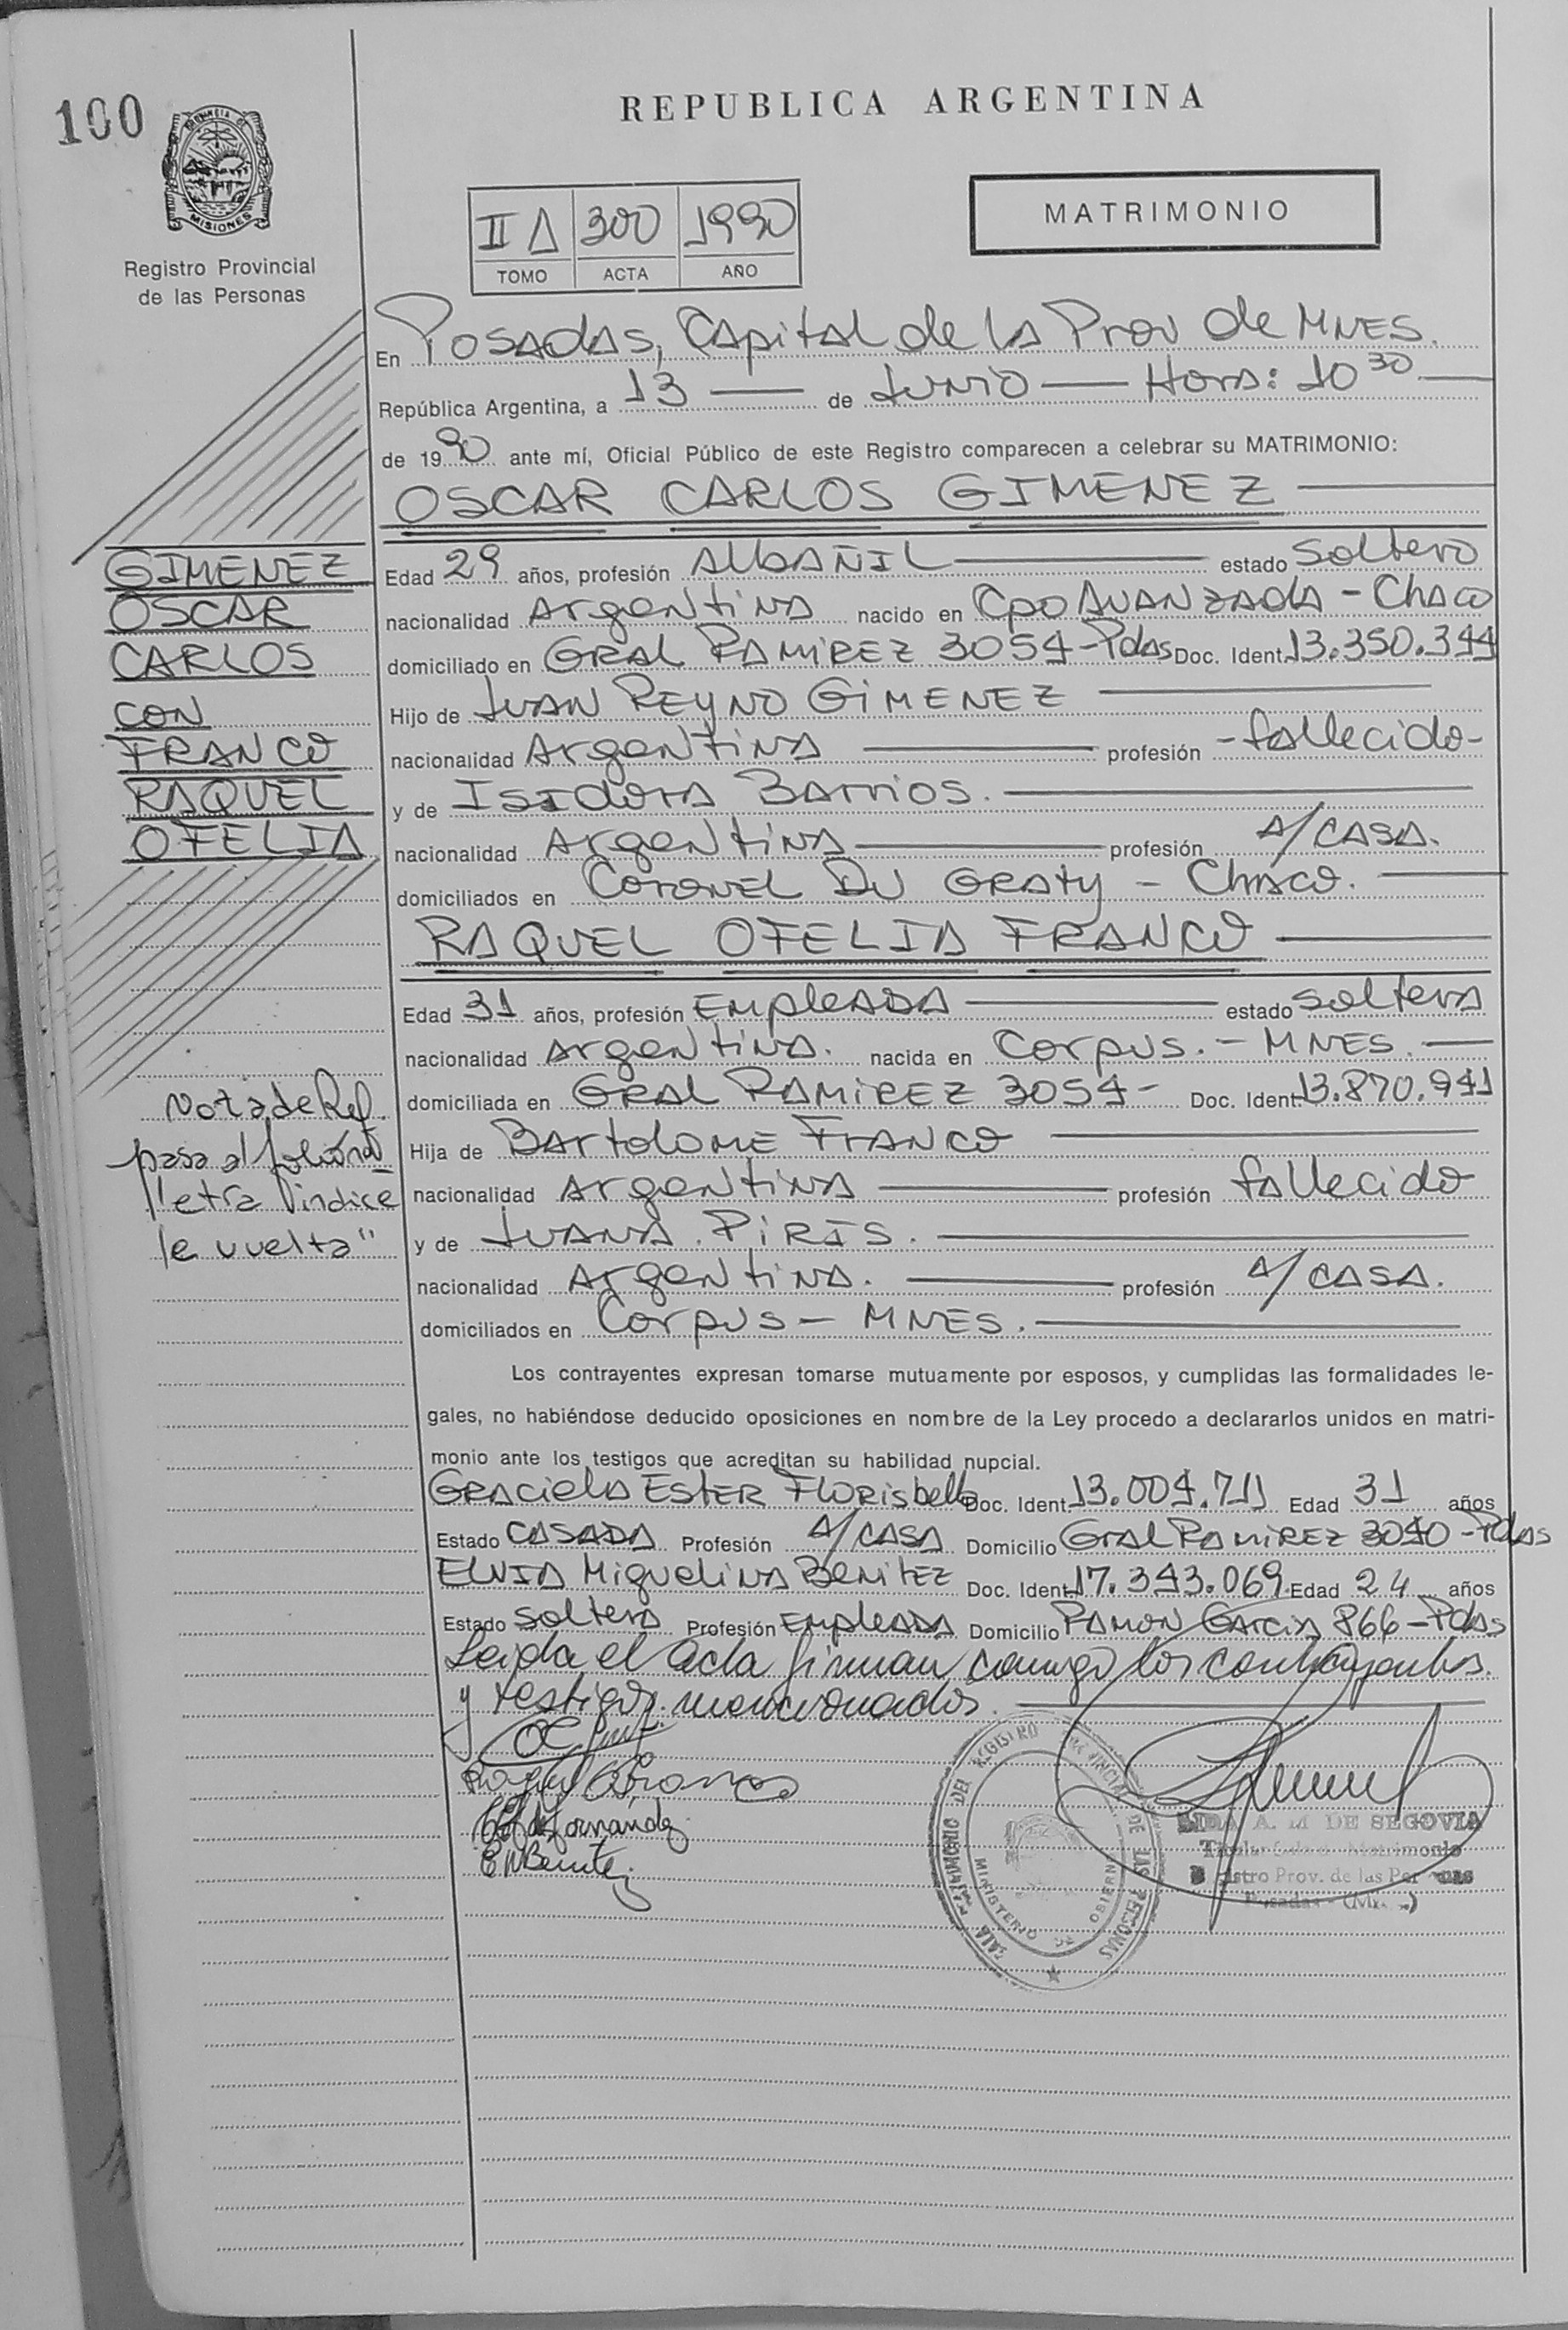 100
PROVINCIA DE
MISIONES
Registro Provincial
de las Personas
REPUBLICA ARGENTINA
II A 300 1990
TOMO ACTA AÑO
MATRIMONIO
En Posadas, Capital de la Prov de Mnes.
República Argentina, a 13 de Junio Hora: 10 30
de 1990 ante mí, Oficial Público de este Registro comparecen a celebrar su MATRIMONIO:
OSCAR CARLOS GIMENEZ
Edad 29 años, profesión Albañil estado soltero
nacionalidad Argentina nacido en Cpo Avanzada - Chaco
domiciliado en Gral Ramirez 3054 - Pdas Doc. Ident. 13.350.344
Hijo de Juan Reyno Gimenez
nacionalidad Argentina profesión - fallecido -
y de Isidora Barrios.
nacionalidad Argentina profesión A/CASA.
domiciliados en Coronel Du Graty - Chaco.
RAQUEL OFELIA FRANCO
Edad 31 años, profesión Empleada estado soltera
nacionalidad Argentina. nacida en Corpus. - Mnes.
domiciliada en Gral Ramirez 3054 - Doc. Ident. 13.870.941
Hija de Bartolome Franco
nacionalidad Argentina profesión fallecido
y de Juana Piris.
nacionalidad Argentina. profesión A/CASA.
domiciliados en Corpus - Mnes.
Los contrayentes expresan tomarse mutuamente por esposos, y cumplidas las formalidades le-
gales, no habiéndose deducido oposiciones en nombre de la Ley procedo a declararlos unidos en matri-
monio ante los testigos que acreditan su habilidad nupcial.
Graciela Ester Florisbello Doc. Ident. 13.004.711 Edad 31 años
Estado CASADA Profesión A/CASA Domicilio Gral Ramirez 3040 - Pdas
Elvia Miguelina Benitez Doc. Ident. 17.343.069 Edad 24 años
Estado soltera Profesión Empleada Domicilio Ramon Garcia 866 - Pdas
Leida el acta firman conmigo los contrayentes
y testigos mencionados.
GIMENEZ
OSCAR
CARLOS
CON
FRANCO
RAQUEL
OFELIA
Nota de Ref.
pasa al folio
letra indice
la vuelta"
Raquel O Franco
de Fernández
E M Benitez
REGISTRO PROVINCIAL DE LAS PERSONAS
SALA MATRIMONIO DEL
MINISTERIO DE GOBIERNO
A. M DE SEGOVIA
Titular Matrimonio
Registro Prov. de las Personas
Posadas - (Mnes.)